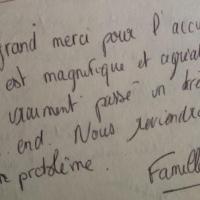 grand merci pour l'accu
est magnifique et agréa
vraiment passé un
end. Nous reviendro
problème.
Famille